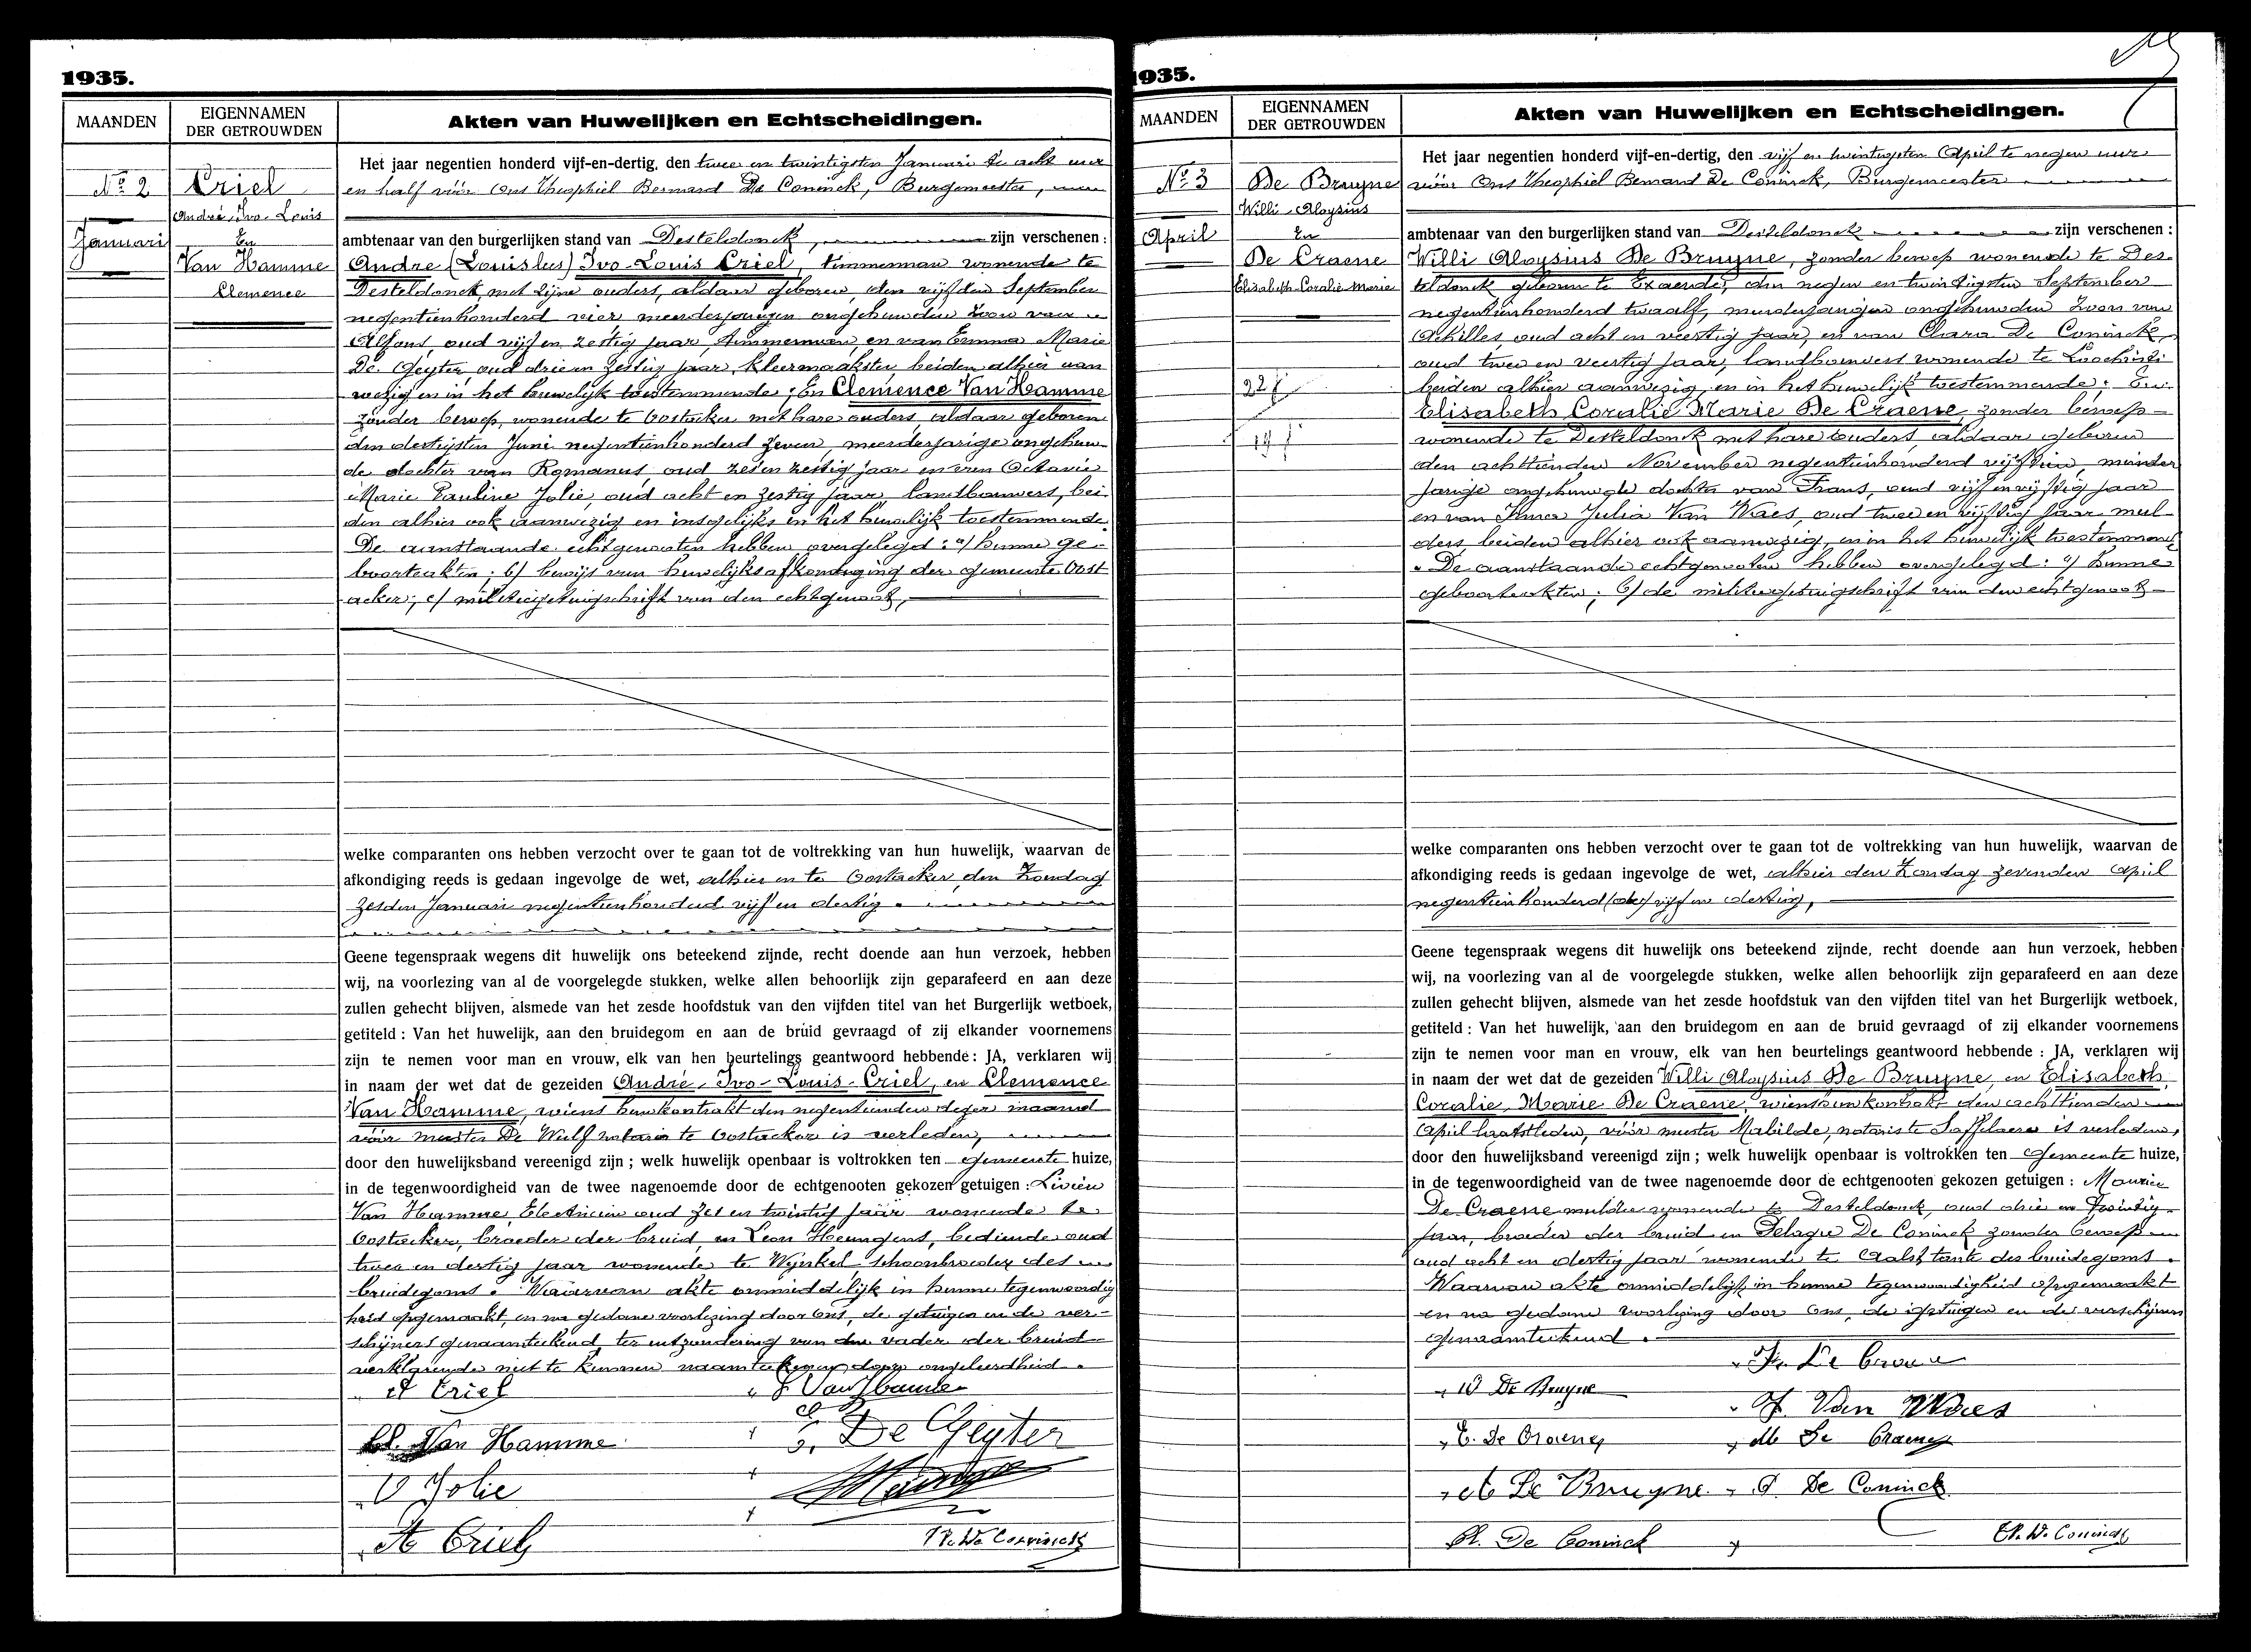 1935.
MAANDEN
EIGENNAMEN
DER GETROUWDEN
Akten van Huwelijken en Echtscheidingen.
No 2
Januari
Criel
André-Ivo-Louis
En
Van Hamme
Clemence
Het jaar negentien honderd vijf-en-dertig, den twee en twintigsten Januari te acht uur
en half vóór Ons Theophiel Bernard De Coninck, Burgemeester,
ambtenaar van den burgerlijken stand van Desteldonck, zijn verschenen :
Andre (Louislus) Ivo-Louis Criel, timmerman wonende te
Desteldonck, met zijne ouders, aldaar geboren, den vijfden September
negentienhonderd vier meerderjarigen ongehuwden zoon van
Alfons, oud vijf en zestig jaar, timmerman, en van Emma Marie
De Geyter, oud drie en zestig jaar, kleermaakster, beiden alhier aan
wezig en in het huwelijk toestemmende ; En Clemence Van Hamme
zonder beroep, wonende te Oostacker met hare ouders, aldaar geboren
den dertigsten Juni negentienhonderd zeven, meerderjarige ongehuw-
de dochter van Romanus, oud zes en zestig jaar en van Octavie
Marie Pauline Jolie, oud acht en zestig jaar, landbouwers, bei-
den alhier ook aanwezig en insgelijks in het huwelijk toestemmende.
De aanstaande echtgenooten hebben overgelegd : a/ hunne ge-
boorteakten ; b/ bewijs van huwelijksafkondiging der gemeente Oost
acker; c/ militiegetuigschrift van den echtgenoot,
welke comparanten ons hebben verzocht over te gaan tot de voltrekking van hun huwelijk, waarvan de
afkondiging reeds is gedaan ingevolge de wet, alhier en te Oostacker, den Zondag
zesden Januari negentienhonderd vijf en dertig.
Geene tegenspraak wegens dit huwelijk ons beteekend zijnde, recht doende aan hun verzoek, hebben
wij, na voorlezing van al de voorgelegde stukken, welke allen behoorlijk zijn geparafeerd en aan deze
zullen gehecht blijven, alsmede van het zesde hoofdstuk van den vijfden titel van het Burgerlijk wetboek,
getiteld : Van het huwelijk, aan den bruidegom en aan de bruid gevraagd of zij elkander voornemens
zijn te nemen voor man en vrouw, elk van hen beurtelings geantwoord hebbende : JA, verklaren wij
in naam der wet dat de gezeiden André-Ivo-Louis-Criel, en Clemence
Van Hamme, wiens huwkontrakt den negentienden dezer maand
vóór meester De Wulf notaris te Oostacker is verleden,
door den huwelijksband vereenigd zijn ; welk huwelijk openbaar is voltrokken ten gemeente huize,
in de tegenwoordigheid van de twee nagenoemde door de echtgenooten gekozen getuigen : Livien
Van Hamme, Electricien oud zes en twintig jaar wonende te
Oostacker, broeder der bruid, en Leon Heungens, bediende oud
twee en dertig jaar wonende te Wynkel schoonbroeder des
bruidegoms. Waarvan akte onmiddelijk in hunne tegenwoordig
heid opgemaakt, en na gedane voorlezing door Ons, de getuigen en de ver-
schijners genaamteekend, ter uitzondering van den vader der bruid
verklarende niet te kunnen naamteekenen door ongeleerdheid.
A Criel
Van Hamme
Cl. Van Hamme
De Geyter
O Jolie
A Criel
Th. De Coninck
1935.
MAANDEN
EIGENNAMEN
DER GETROUWDEN
Akten van Huwelijken en Echtscheidingen.
No 3
April
De Bruyne
Willi-Aloysius
En
De Craene
Elisabeth-Coralie-Marie
Het jaar negentien honderd vijf-en-dertig, den vijf en twintigsten April te negen uur
vóór Ons Theophiel Bernard De Coninck, Burgemeester
ambtenaar van den burgerlijken stand van Desteldonck zijn verschenen :
Willi Aloysius De Bruyne, zonder beroep wonende te Des-
teldonck geboren te Exaerde, den negen en twintigsten September
negentienhonderd twaalf, meerderjarigen ongehuwden zoon van
Achilles, oud acht en veertig jaar, en van Clara De Coninck,
oud twee en veertig jaar, landbouwers wonende te Loochristi
beiden alhier aanwezig en in het huwelijk toestemmende ; En
Elisabeth Coralie Marie De Craene, zonder beroep
wonende te Desteldonck met hare ouders, aldaar geboren
den achttienden November negentienhonderd vijftien, minder
jarige ongehuwde dochter van Frans, oud vijf en vijftig jaar
en van Irma Julia Van Waes, oud twee en vijftig jaar mul-
ders, beiden alhier ook aanwezig en in het huwelijk toestemmend
De aanstaande echtgenooten hebben overgelegd : a/ hunne
geboorteakten ; b/ de militiegetuigschrift van den echtgenoot
welke comparanten ons hebben verzocht over te gaan tot de voltrekking van hun huwelijk, waarvan de
afkondiging reeds is gedaan ingevolge de wet, alhier den Zondag zevenden April
negentienhonderd vijf en dertig,
Geene tegenspraak wegens dit huwelijk ons beteekend zijnde, recht doende aan hun verzoek, hebben
wij, na voorlezing van al de voorgelegde stukken, welke allen behoorlijk zijn geparafeerd en aan deze
zullen gehecht blijven, alsmede van het zesde hoofdstuk van den vijfden titel van het Burgerlijk wetboek,
getiteld : Van het huwelijk, aan den bruidegom en aan de bruid gevraagd of zij elkander voornemens
zijn te nemen voor man en vrouw, elk van hen beurtelings geantwoord hebbende : JA, verklaren wij
in naam der wet dat de gezeiden Willi Aloysius De Bruyne, en Elisabeth
Coralie, Marie De Craene, wiens huwkontrakt den achttienden
April laatstleden, vóór meester Mabilde, notaris te Saffelaere is verleden,
door den huwelijksband vereenigd zijn ; welk huwelijk openbaar is voltrokken ten Gemeente huize,
in de tegenwoordigheid van de twee nagenoemde door de echtgenooten gekozen getuigen : Maurice
De Craene mulder wonende te Desteldonck, oud drie en twintig
jaar, broeder der bruid en Pelagie De Coninck zonder beroep
oud acht en dertig jaar wonende te Aalst, tante des bruidegoms.
Waarvan akte onmiddelijk in hunne tegenwoordigheid opgemaakt
en na gedane voorlezing door Ons, de getuigen en de verschijners
genaamteekend.
Fr. De Craene
W De Bruyne
J. Van Waes
E. De Craene
M De Craene
A De Bruyne
P. De Coninck
Cl. De Coninck
Th. De Coninck